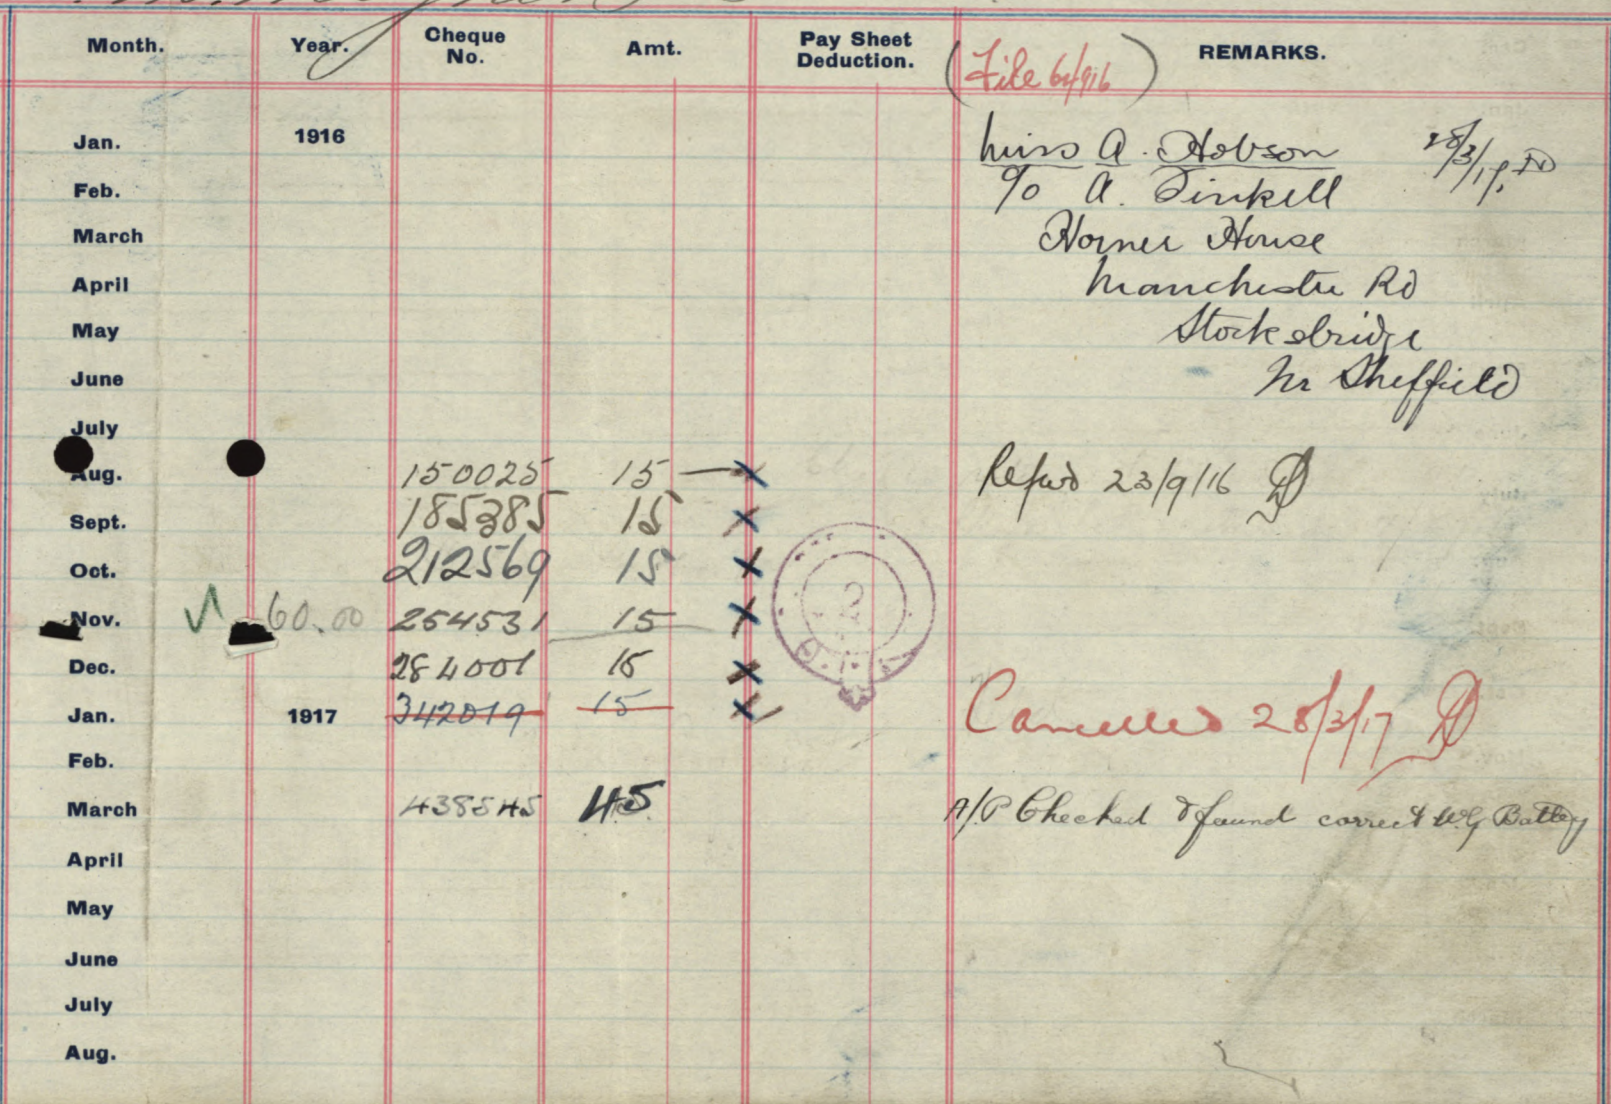 Month. Year. Cheque No. Amt. Pay Sheet Deduction. (File 64/916) REMARKS.
Jan. 1916 Miss A. Hobson 28/3/17.
Feb. c/o A. Tinkell
March Horner House
April Manchester Rd
May Stocksbridge
June Nr Sheffield
July
Aug. 150025 15 — x 23/9/16
Sept. 185385 15 x
Oct. 212569 15 x
Nov. 60.00 254531 15 x
Dec. 284001 15 x
Jan. 1917 342019 15 x Cancelled 28/3/17
Feb.
March 438545 45 A/P Checked & found correct W.G. Battey
April
May
June
July
Aug.
2